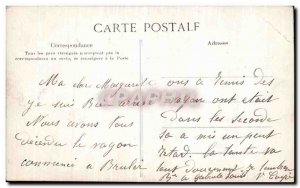 CARTE POSTALE
Correspondance
Tous les pays étrangers n'acceptent pas la
correspondance au verso, se renseigner à la Poste
Adresse
Ma cher Marguerite
je suis Bien arrivé
Nous avons tous
descendu le wagon
commencé a Bruler
ons a remis des
wagon ont était
Dans les Seconde
sa a mis un peut
retard. la tante va